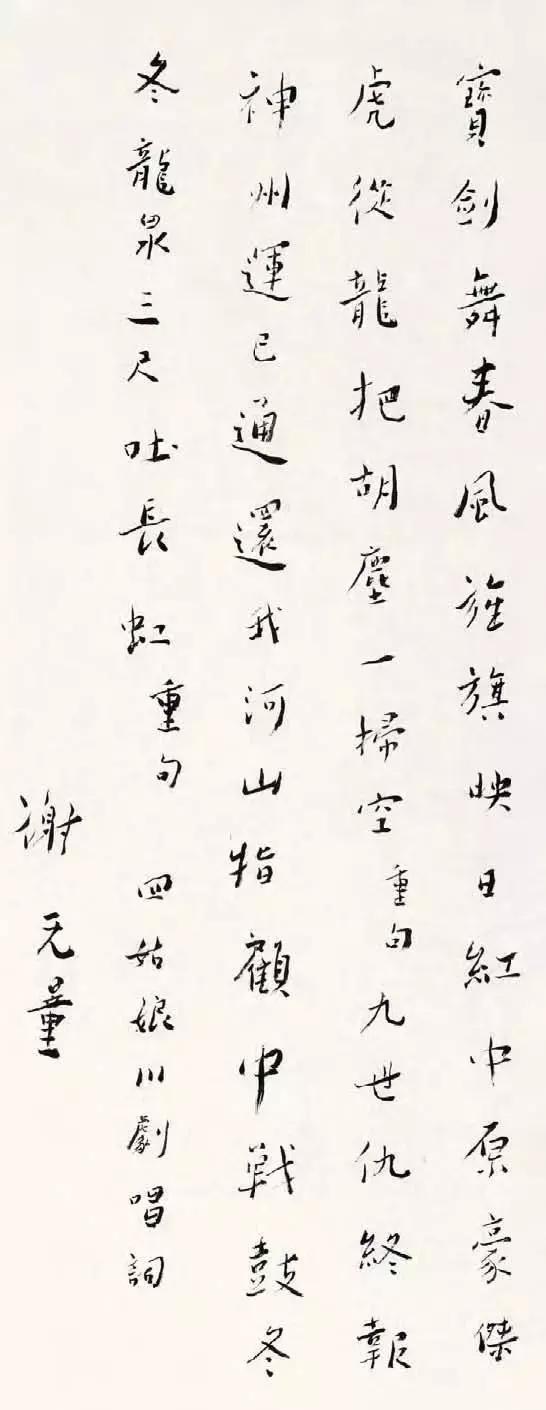 寶劍舞春風旌旗映日紅中原豪傑
虎從龍把胡塵一掃空重句九世仇終報
神州運已通還我河山指顧中戰鼓冬
冬龍泉三尺吐長虹重句 四姑娘川劇唱詞
謝无量